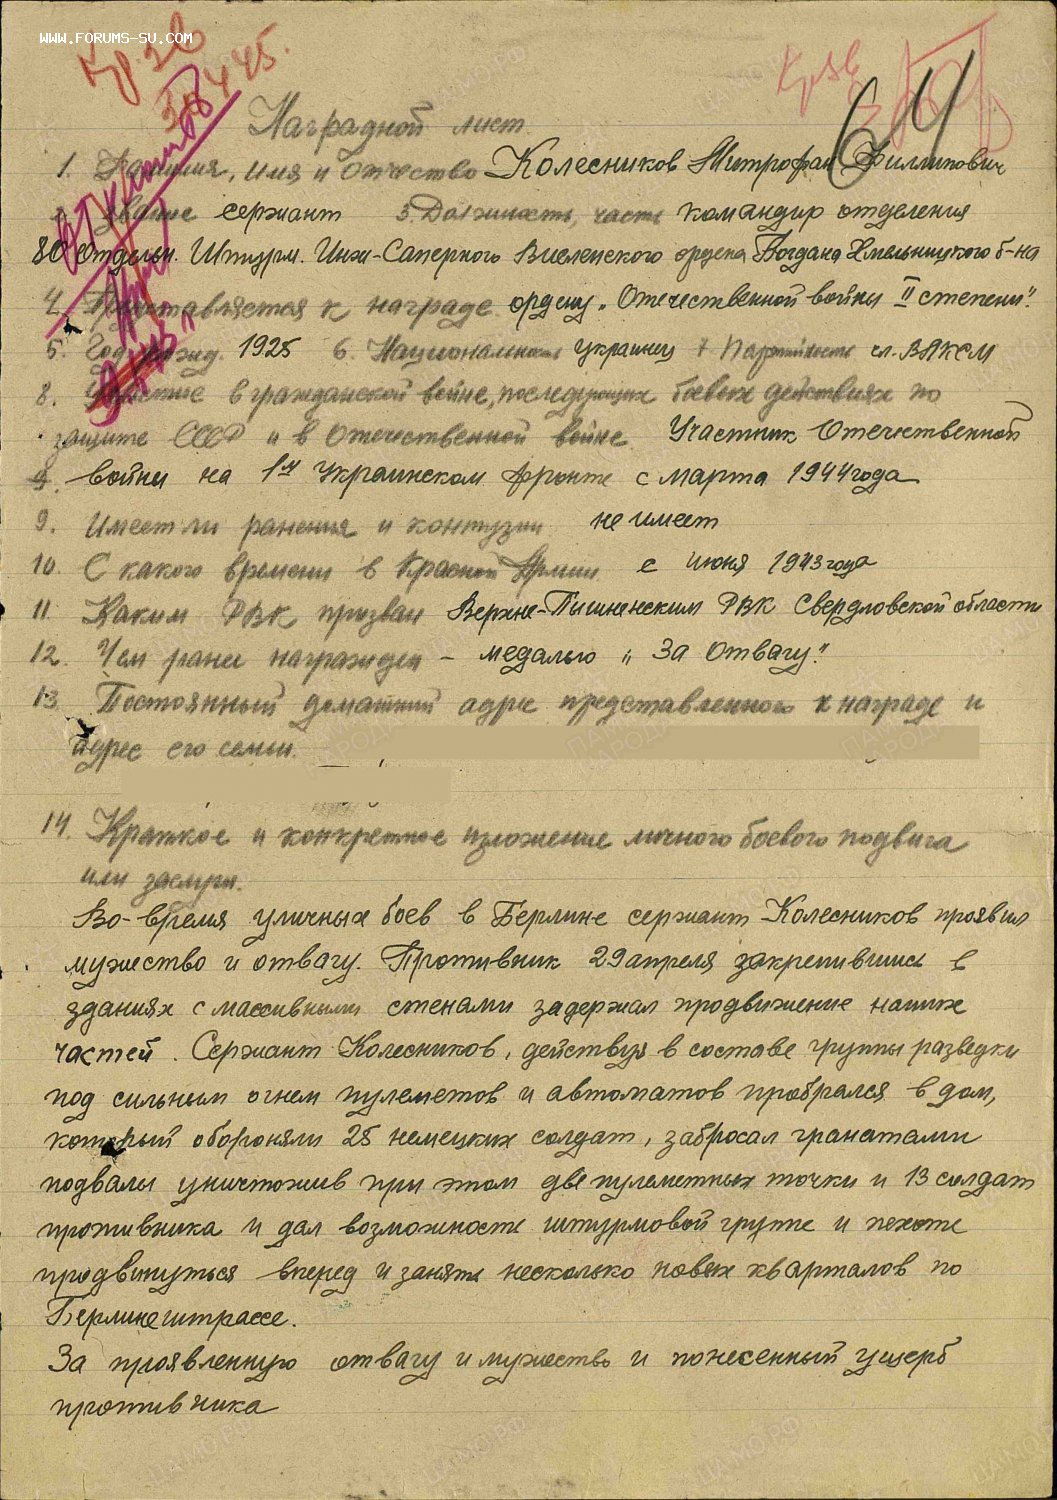 www.forums-su.com
64
Наградной лист
1. Фамилия, имя и отчество Колесников Митрофан Филлипович
2. Звание сержант 3. Должность, часть командир отделения
80 отдельн. Штурм. Инж-Саперного Висленского ордена Богдана Хмельницкого б-на
4. Представляется к награде ордену „Отечественной войны II степени".
5. Год рожд. 1925 6. Национальность украинец 7 Партийность чл. ВЛКСМ
8. Участие в гражданской войне, последующих боевых действиях по
защите СССР и в Отечественной войне Участник Отечественной
войны на 1м Украинском фронте с марта 1944 года
9. Имеет ли ранения и контузии не имеет
10. С какого времени в Красной Армии с июня 1943 года
11 Каким РВК призван Верхне-Пышменским РВК Свердловской области
12. Чем ранее награжден - медалью „За Отвагу".
13. Постоянный домашний адрес представленного к награде и
адрес его семьи.
14. Краткое и конкретное изложение личного боевого подвига
или заслуги.
Во-время уличных боев в Берлине сержант Колесников проявил
мужество и отвагу. Противник 29 апреля закрепившись в
зданиях с массивными стенами задержал продвижение наших
частей. Сержант Колесников, действуя в составе группы разведки
под сильным огнем пулеметов и автоматов пробрался в дом,
который обороняли 25 немецких солдат, забросал гранатами
подвалы уничтожив при этом две пулеметных точки и 13 солдат
противника и дал возможность штурмовой группе и пехоте
продвинуться вперед и занять несколько новых кварталов по
Берлинештрассе.
За проявленную отвагу и мужество и понесенный ущерб
противника